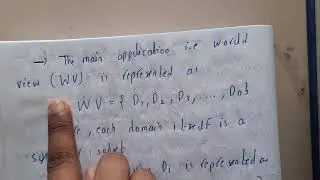 → The main application i.e world
view (WV) is represented as
WV = { D1, D2, D3, ...., Dn}
, each domain itself is a
subset
Di is represented as